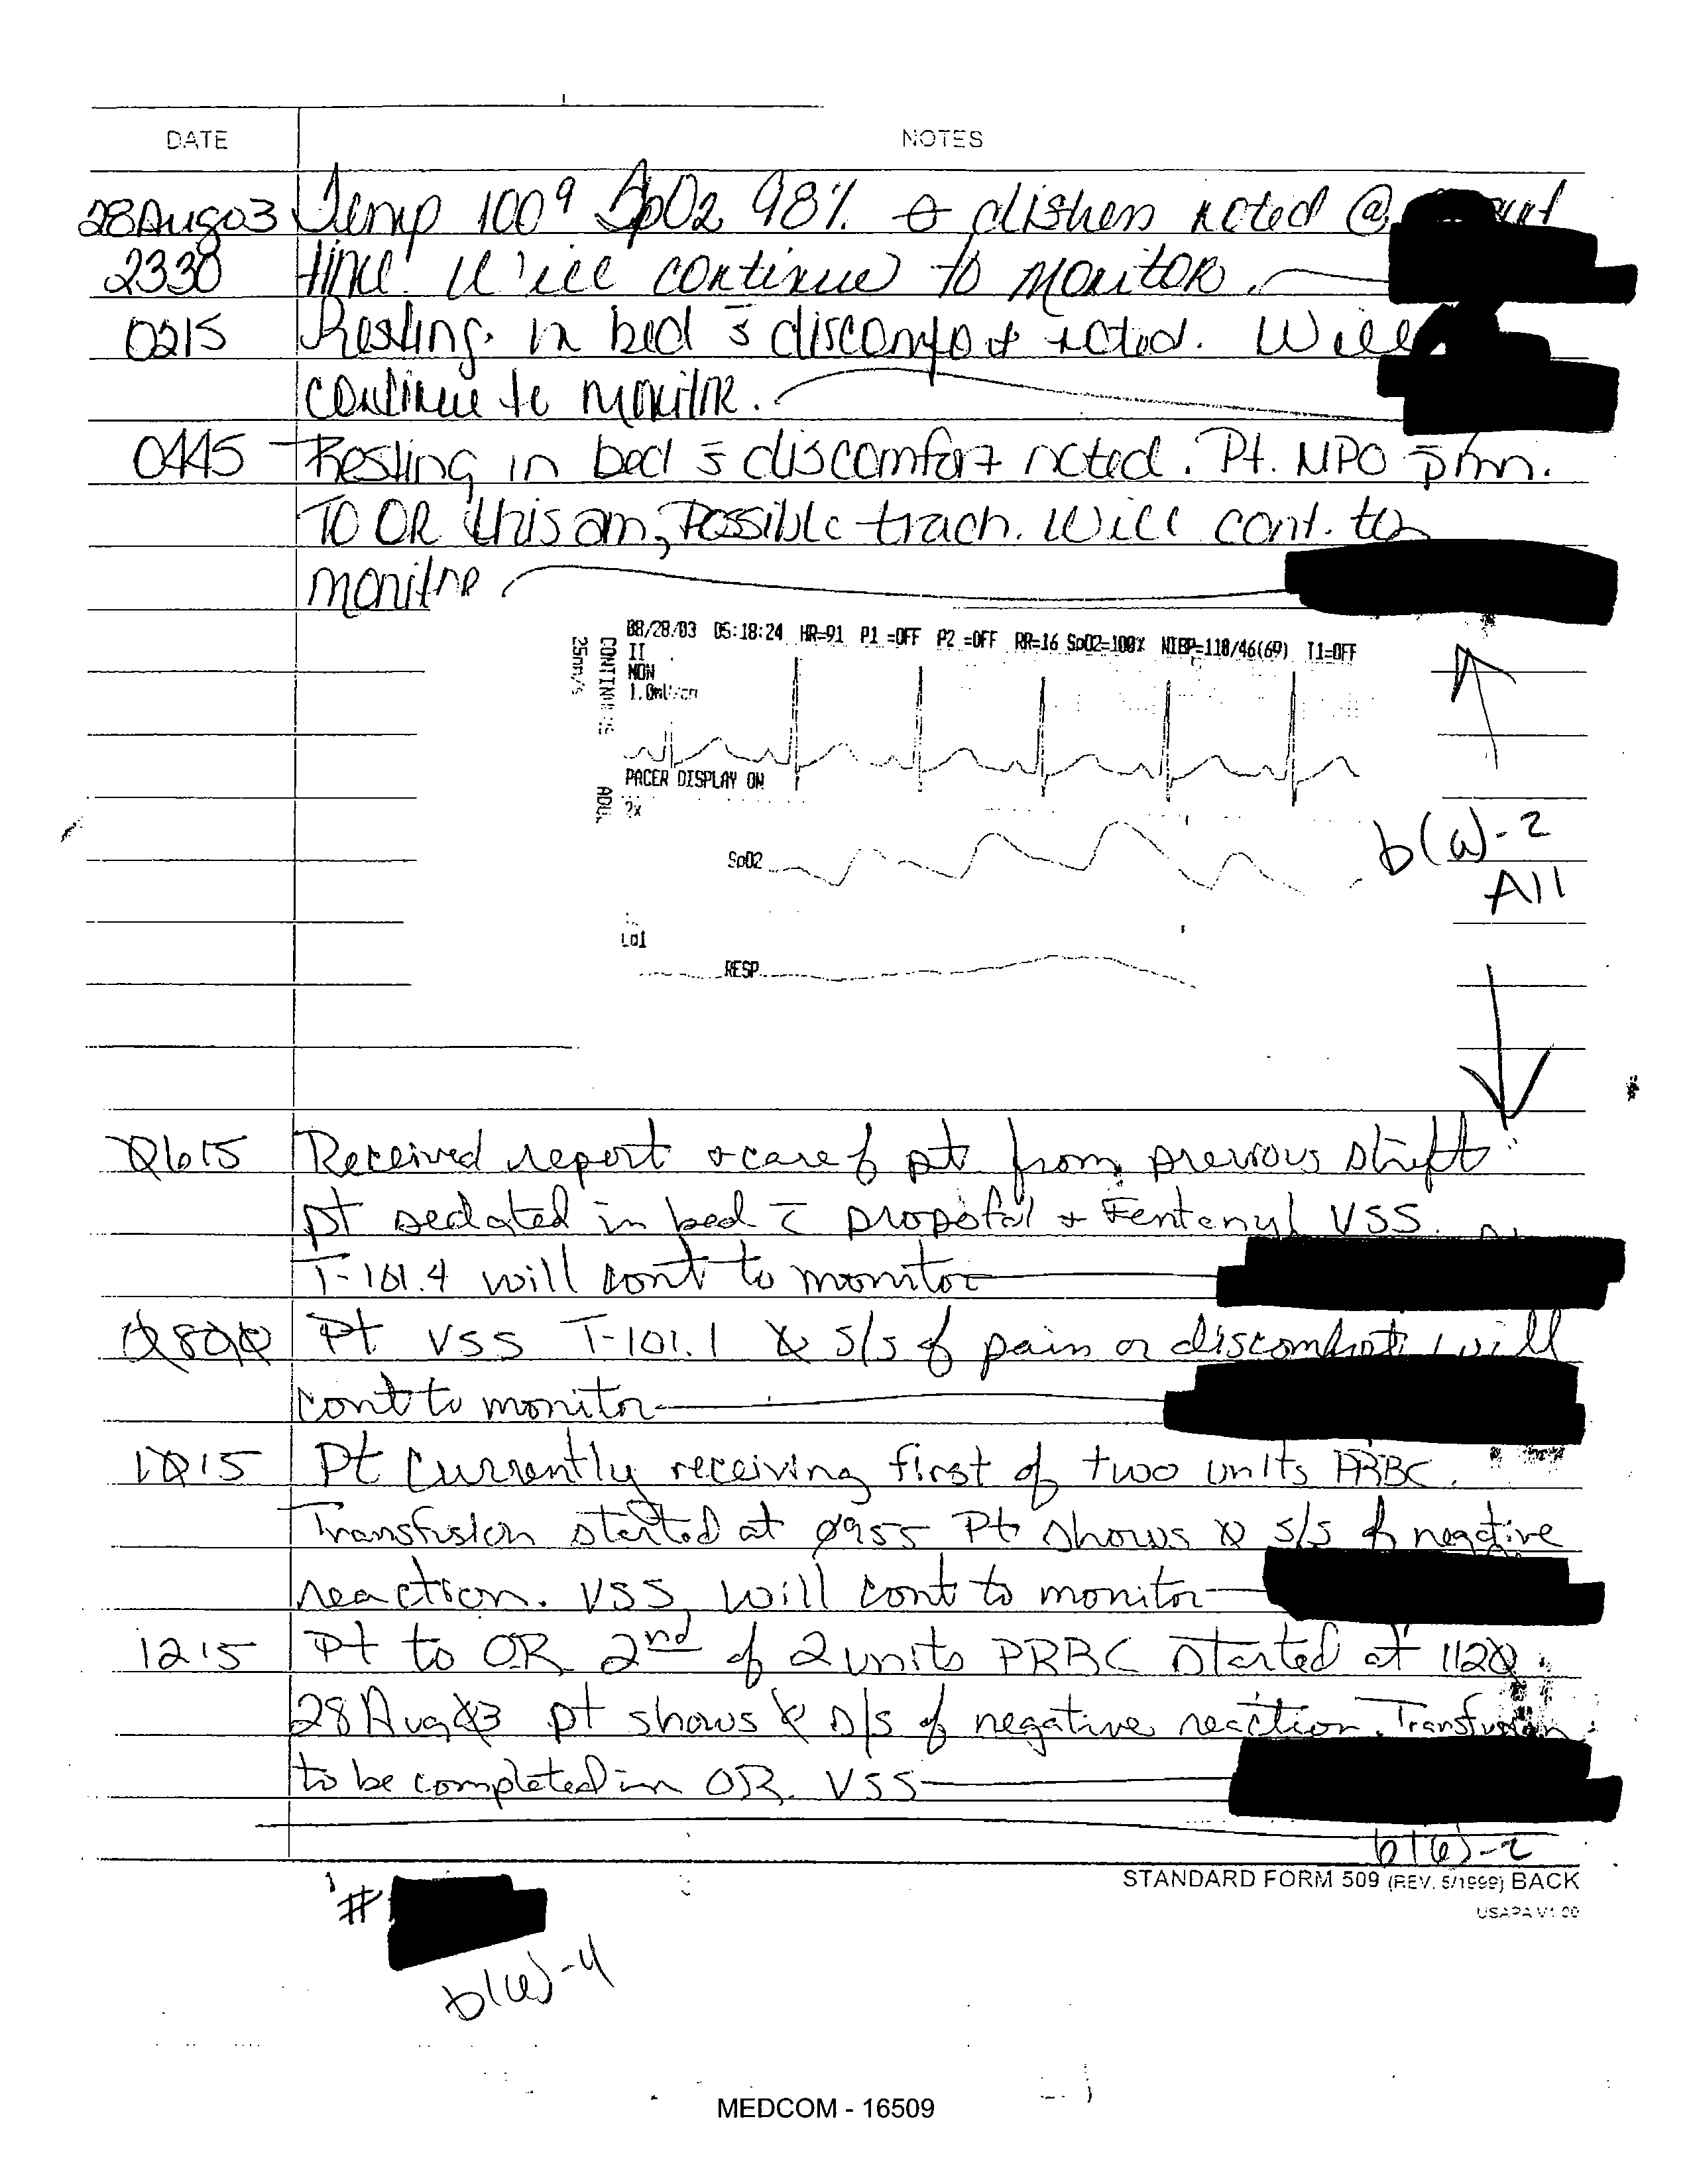 DATE NOTES
28Aug03 Temp 100⁹ SpO2 98% ∅ distress noted @
2330 time. Will continue to monitor.
0215 Resting in bed s̄ discomfort noted. Will
continue to monitor.
0445 Resting in bed s̄ discomfort noted. Pt. NPO p̄ mn.
TO OR this am, Possible trach. Will cont. to
monitor
08/28/03 05:18:24 HR=91 P1 =OFF P2 =OFF RR=16 SpO2=100% NIBP=118/46(69) T1=OFF
II
MON
25mm/s
PACER DISPLAY ON
2x
SpO2
b(6)-2
All
RESP
0615 Received report + care of pt from previous shift
pt sedated in bed c̄ propofol + Fentanyl VSS.
T-101.4 will cont to monitor
0800 Pt VSS T-101.1 ∅ s/s of pain or discomfort, will
cont to monitor
1015 Pt currently receiving first of two units PRBC.
Transfusion started at 0955 Pt shows ∅ s/s of negative
reaction. VSS, will cont to monitor
1215 Pt to OR 2nd of 2 units PRBC started at 1120
28Aug03 pt shows ∅ s/s of negative reaction. Transfusion
to be completed in OR. VSS
b(6)-2
STANDARD FORM 509 (REV. 5/1999) BACK
USAPA V1.00
#
b(6)-4
MEDCOM - 16509